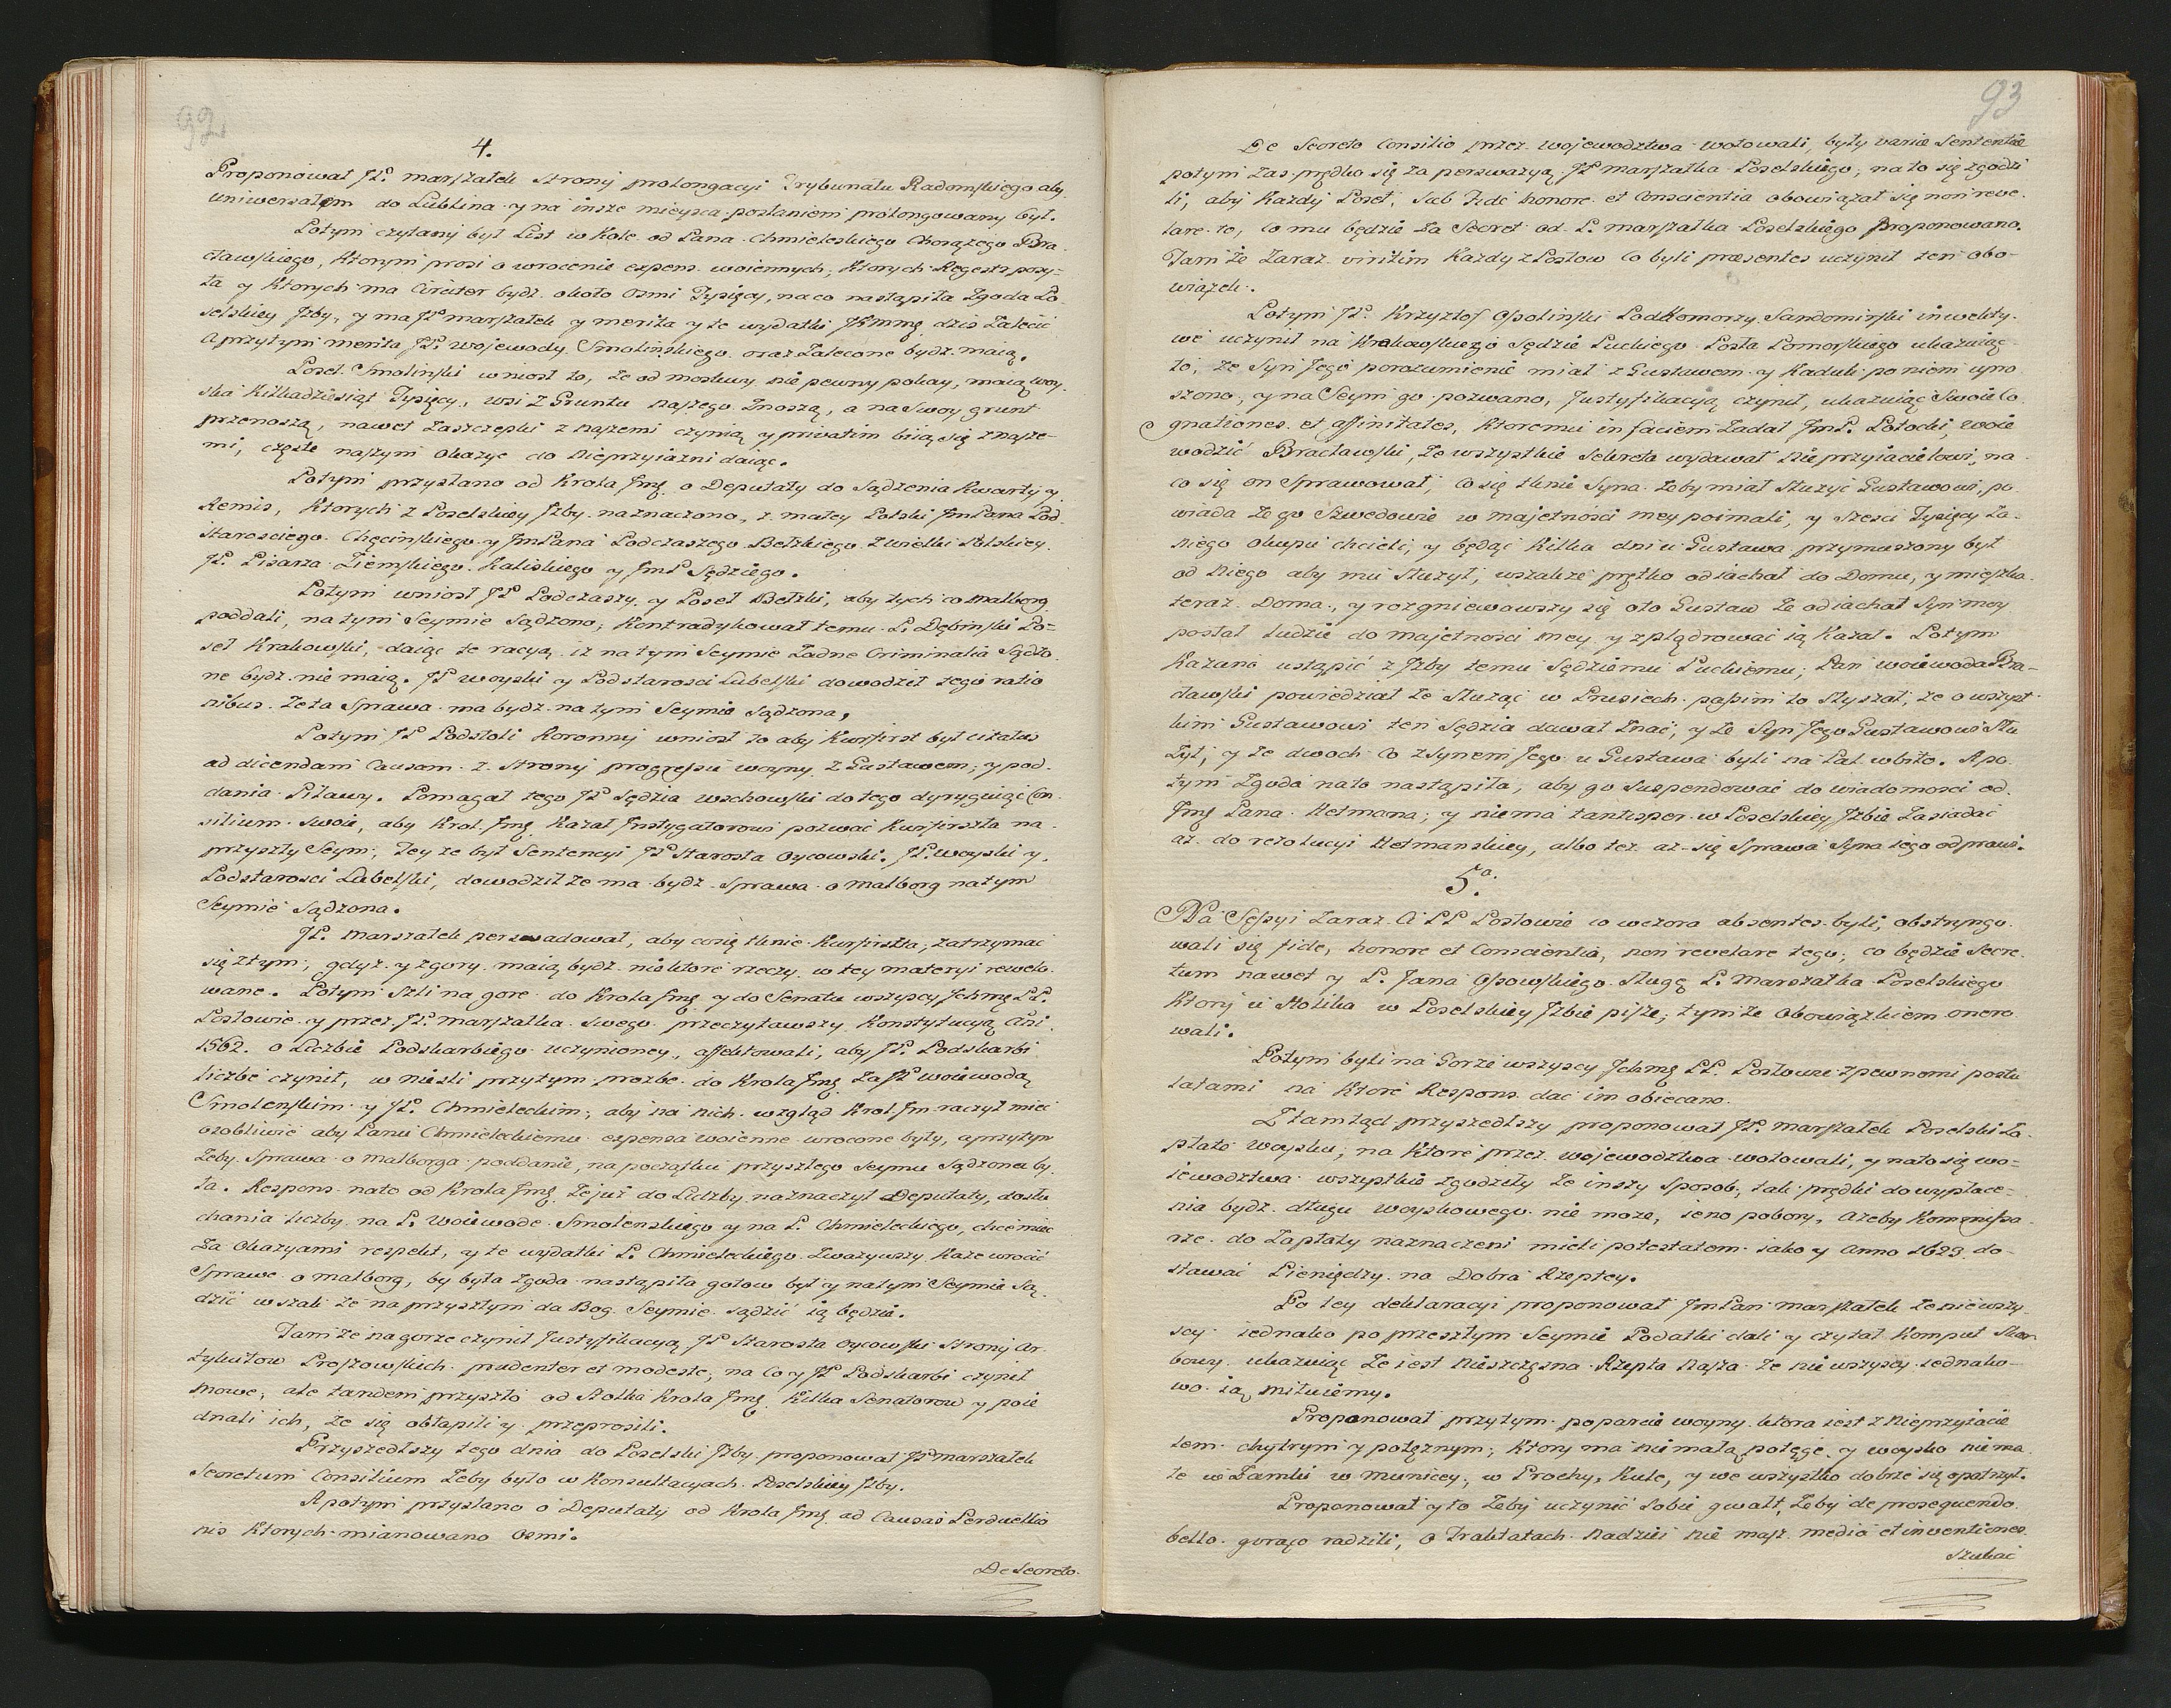 92
4.
Proponował JP. marszałek strony prolongacyi Trybunału Radomskiego aby
uniwersałem do Lublina y na insze mieysca posłaniem prolongowany był.
Potym czytany był List w Kole od Pana Chmieleskiego Chorążego Bra-
cławskiego, Ktorym prosi o wrocenie expens woiennych, Ktorych Regestr posy-
ła y Ktorych ma Circiter bydź około Osmi Tysięcy, na co nastąpiła Zgoda Po-
selskiey Jzby, y ma JP marszałek y merita y te wydatki JKmmę dzis Zalecić
a przytym merita JP. Wojewody Smolińskiego oraz Zalecone bydź maią.
Poseł Smolinski wniosł to, że od moskwy nie pewny pokoy, maią woy-
ska Kilkadziesiąt Tysięcy, wsi z Gruntu naszego Znoszą, a na Swoy grunt
przenoszą, nawet Zaszczepki z naszemi czynią y privatim biią się z nasze-
mi, częste naszym Okazye do Nieprzyiazni daiąc.
Potym przysłano od Krola Jmę o Deputaty do Sądzenia Kwarty y
Remis, Ktorych z Poselskiey Jzby naznaczono, z małey Polski JmPana Pod-
starosciego Chęcinskiego y JmPana Podczaszego Bełzkiego Zwielki Polskiey
JP. Pisarza Ziemskiego Kaliskiego y JmP Sędziego.
Potym wniosł JP Podczaszy y Poseł Bełzki, aby tych co Malborg
poddali, na tym Seymie Sądzono; Kontradykował temu P. Dębinski Po-
seł Krakowski, daiąc te racyą iż na tym Seymie Żadne Criminalia Sądzo-
ne bydź nie maią. JP woyski y Podstarosci Lubelski dowodził tego ratio
nibus. Że ta Sprawa ma bydź na tym Seymie Sądzona,
Potym JP Podstoli Koronny wniosł to aby Kurfirst był citatus
ad dicendam Causam z strony progressu woyny z Gustawem, y pod-
dania Piławy. Pomagał tego JP Sędzia wschowski do tego dyryguiąc Con-
silium Swoie, aby Krol Jmę Kazał Jnstygatorowi pozwać Kurfirszta na
przyszły Seym, Tey że był Sentencyi JP Starosta Oycowski. JP. woyski y
Podstarosci Lubelski, dowodził że ma bydź Sprawa o Malborg na tym
Seymie Sądzona.
JP. Marszałek perswadował, aby co się tknie Kurfirszta, zatrzymać
się z tym, gdyż y zgory maią bydź niektore rzeczy w tey materyi rewelo-
wane. Potym Szli na gorę do Krola Jmę y do Senatu wszyscy Jchmę PP.
Posłowie y przez JP. Marszałka Swego przeczytawszy Konstytucyą Ani
1562. o Liczbie Podskarbiego uczynioney, affektowali, aby JP. Podskarbi
liczbę czynił, wnieśli przytym prozbę do Krola Jmę Za JP Woiewodą
Smolenskim y JP. Chmieleckim, aby na nich wzgląd Krol Jm raczył mieć
osobliwie aby Panu Chmieleckiemu expensa woienne wrocone były, a przytym
Żeby Sprawa o Malborga poddanie, na początku przyszłego Seymu Sądzona by-
ła. Respons na to od Krola Jmę że już do Liczby naznaczył Deputaty, dosłu
chania liczby, na P. Woiewode Smolenskiego y na P. Chmieleckiego, chce mieć
Za Okazyami respekt, y te wydatki P. Chmieleckiego Zważywszy Każe wrocić
Sprawę o Malborg, by była zgoda nastąpiła gotow był y na tym Seymie Są-
dzić wszak że na przyszłym da Bog Seymie sądzić ią będzie.
Tam że na gorze czynił Justyfikacyą JP Starosta Oycowski strony Ar-
tykułow Proszowskich prudenter et modeste, na Co y JP Podskarbi czynił
mowę, ale tandem przyszło od Stołka Krola Jmę Kilka Senatorow y poie
dnali ich, że się obłapili y przeprosili.
Przyszedłszy tego dnia do Poselski Jzby proponował JP marszałek
Secretum Consilium Żeby było w Konsultacyach Poselskiey Jzby.
A potym przysłano o Deputaty od Krola Jmę ad Causas Perduellio
nis Ktorych mianowano Osmi.
De Secreto.
93
De Secreto Consilio przez wojewodztwa wotowali, były variae Sententiae
potym zas prędko się za perswazyą JP marszałka Poselskiego, na to się zgodzi
li, aby Kazdy Poseł, Sub Fide honore et Conscientia obowiązał się non reve-
lare to, co mu będzie Za Secret od P. marszałka Poselskiego proponowano.
Tam że Zaraz viritim Kazdy z Posłow co byli praesentes uczynił ten obo-
wiązek.
Potym JP. Krzysztof Ossolinski Podkomorzy Sandomirski inwekty-
wę uczynił na Krakowskiego Sędzie Puckiego Posła Pomorskiego ukazuiąc
to, że Syn Jego porozumienie miał z Gustawem y Kaduki po niem upro
szono, y na Seym go pozwano, Justyfikacyią czynił, ukazuiąc Swoie Co
gnationes et affinitates, Ktoremu in faciem Zadał JmP. Potocki, Woie
wodzić Bracławski, Że wszystkie Sekreta wydawał Nieprzyiacielowi, na
co się on Sprawował, co się tknie Syna żeby miał służyć Gustawowi, po
wiada że go Szwedowie w majętności mey poimali, y Szesci Tysięcy Za
Niego okupu chcieli, y będąc Kilka dni u Gustawa przymuszony był
od Niego aby mu Służył, wszakże prętko odiachał do Domu, y mieszka
teraz Doma, y rozgniewawszy się oto Gustaw że odiachał Syn moy
posłał ludzie do majętności mey y zplądrować ią Kazał. Potym
Kazano ustąpić z Jzby temu Sędziemu Puckiemu, Pan woiewoda Bra-
cławski powiedział że Służąc w Prusiech passim to Słyszał, że o wszyst-
kim Gustawowi ten Sędzia dawał Znać, y że Syn Jego Gustawowi Słu
żył, y że dwoch Co z Synem Jego u Gustawa byli na Pal wbito. A po
tym Zgoda na to nastąpiła, aby go Suspendować do wiadomości od
Jmę Pana Hetmana, y niema tantisper w Poselskiey Jzbie Zasiadać
aż do rezolucyi Hetmanskiey, albo też aż się Sprawa Syna iego odprawi.
5a.
Na Sessyi Zaraz Ci PP Posłowie co wczora absentes byli, obstryngo
wali się fide, honore et Conscientia, non revelare tego, co będzie Secre-
tum nawet y P. Jana Ossowskiego Sługę P. Marszałka Poselskiego
Ktory u Stolika w Poselskiey Jzbie pisze, tym że Obowiązkiem onero
wali.
Potym byli na Gorze wszyscy Jchmę PP. Posłowie z pewnemi postu
latami na Ktore Respons dać im obiecano.
Ztamtąd przyszedłszy proponował JP. Marszałek Poselski Za-
płatę Woysku, na Ktore przez wojewodztwa wotowali, y na to się wo-
iewodztwa wszystkie zgodziły że inszy Sposob, tak prędki do wypłace-
nia bydz długu woyskowego nie może, ieno pobory, ażeby Kommissa-
rze do Zapłaty naznaczeni mieli potestatem iako y Anno 1623 do-
stawać Pieniędzy na Dobra Rzeptey.
Po tey deklaracyi proponował JmPan marszałek że nie wszy-
scy iednako po przeszłym Seymie Podatki dali y czytał Komput Skar
bowy ukazuiąc że iest Nieszczęsna Rzepta Nasza że nie wszyscy iednako-
wo ią miłuiemy.
Proponował przytym poparcie woyny ktora iest z Nieprzyiacie
lem chytrym y potęznym, Ktory ma nie małą potęgę y woysko nie ma
łe w Zamki w municey, w Prochy, Kule, y we wszystko dobrze się opatrzył.
Proponował y to Żeby uczynić Sobie gwałt, Żeby de prosequendo
bello gorąco radzili, o Traktatach Nadziei nie masz media et inventiones
szukać